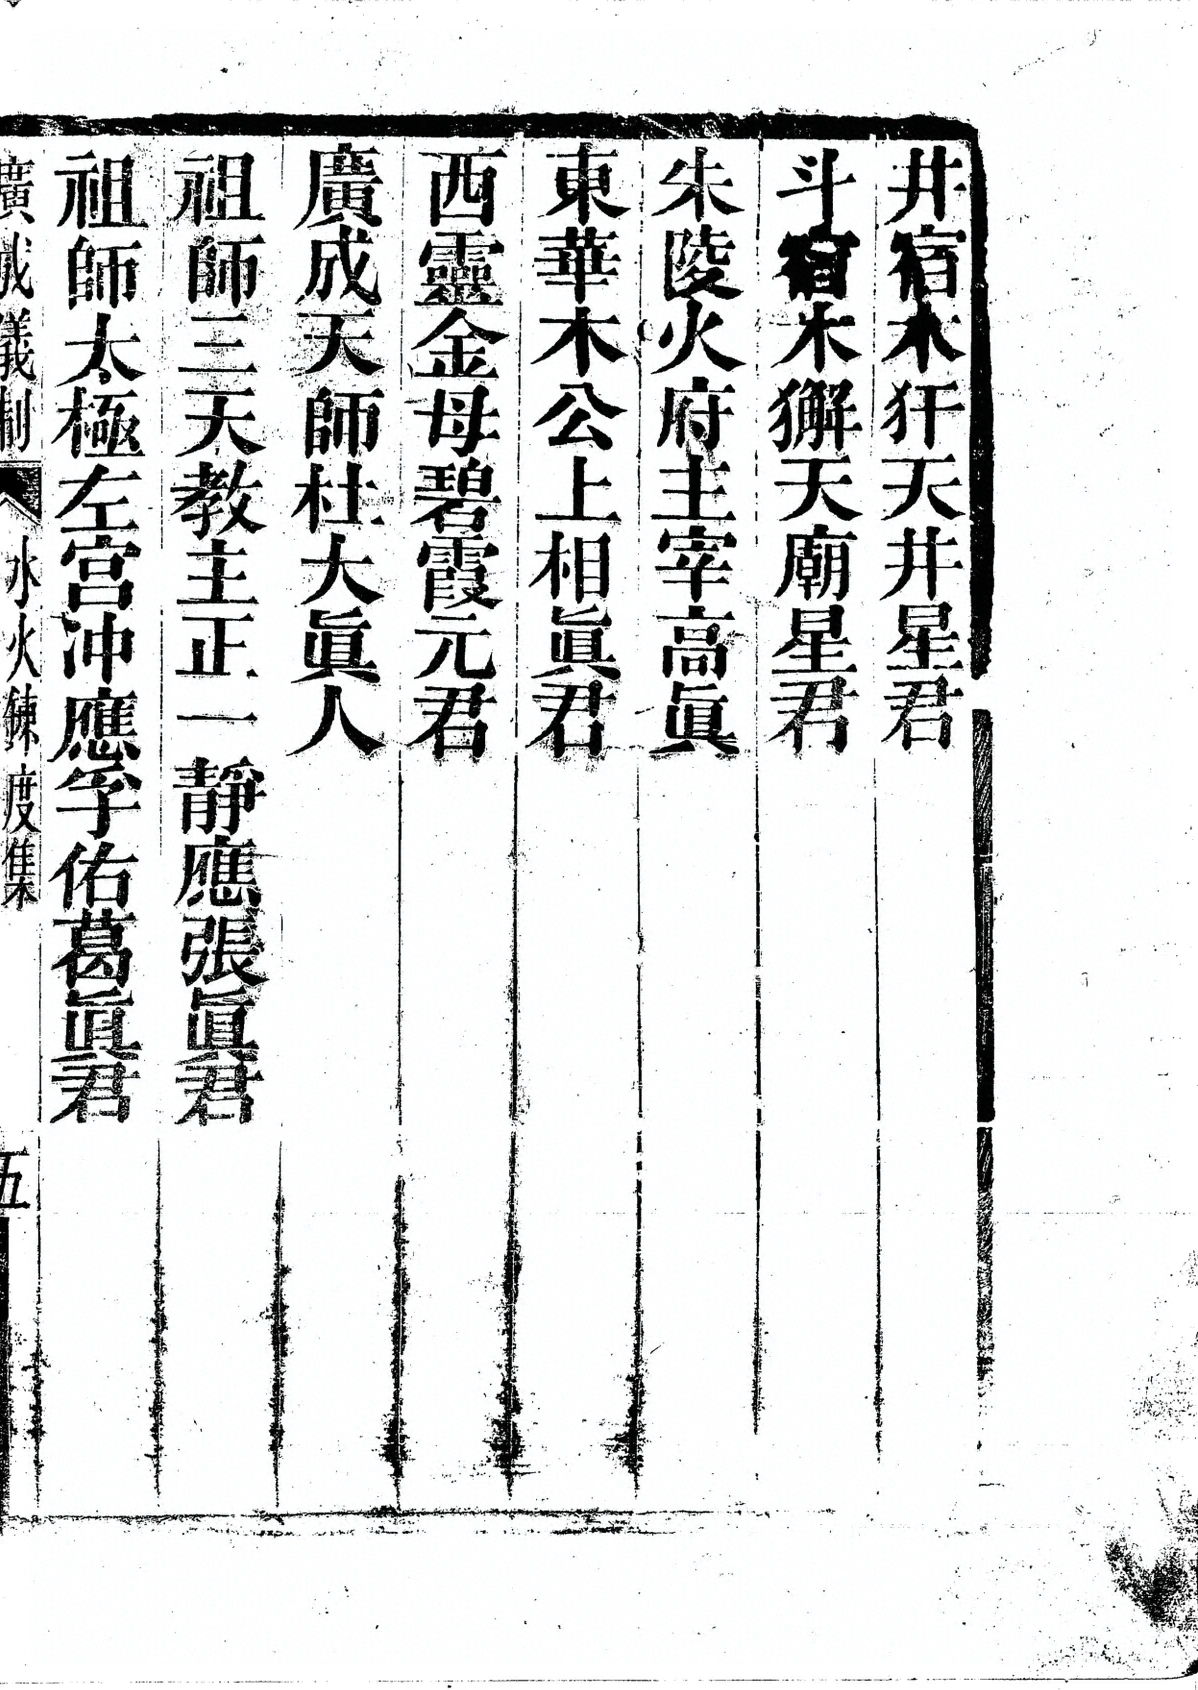 井宿木犴天井星君
斗宿木獬天廟星君
朱陵火府主宰高眞
東華木公上相眞君
西靈金母碧霞元君
廣成天師杜大眞人
祖師三天教主正一靜應張眞君
祖師太極左宮冲應孚佑葛眞君
廣成儀制 水火鍊度集 五